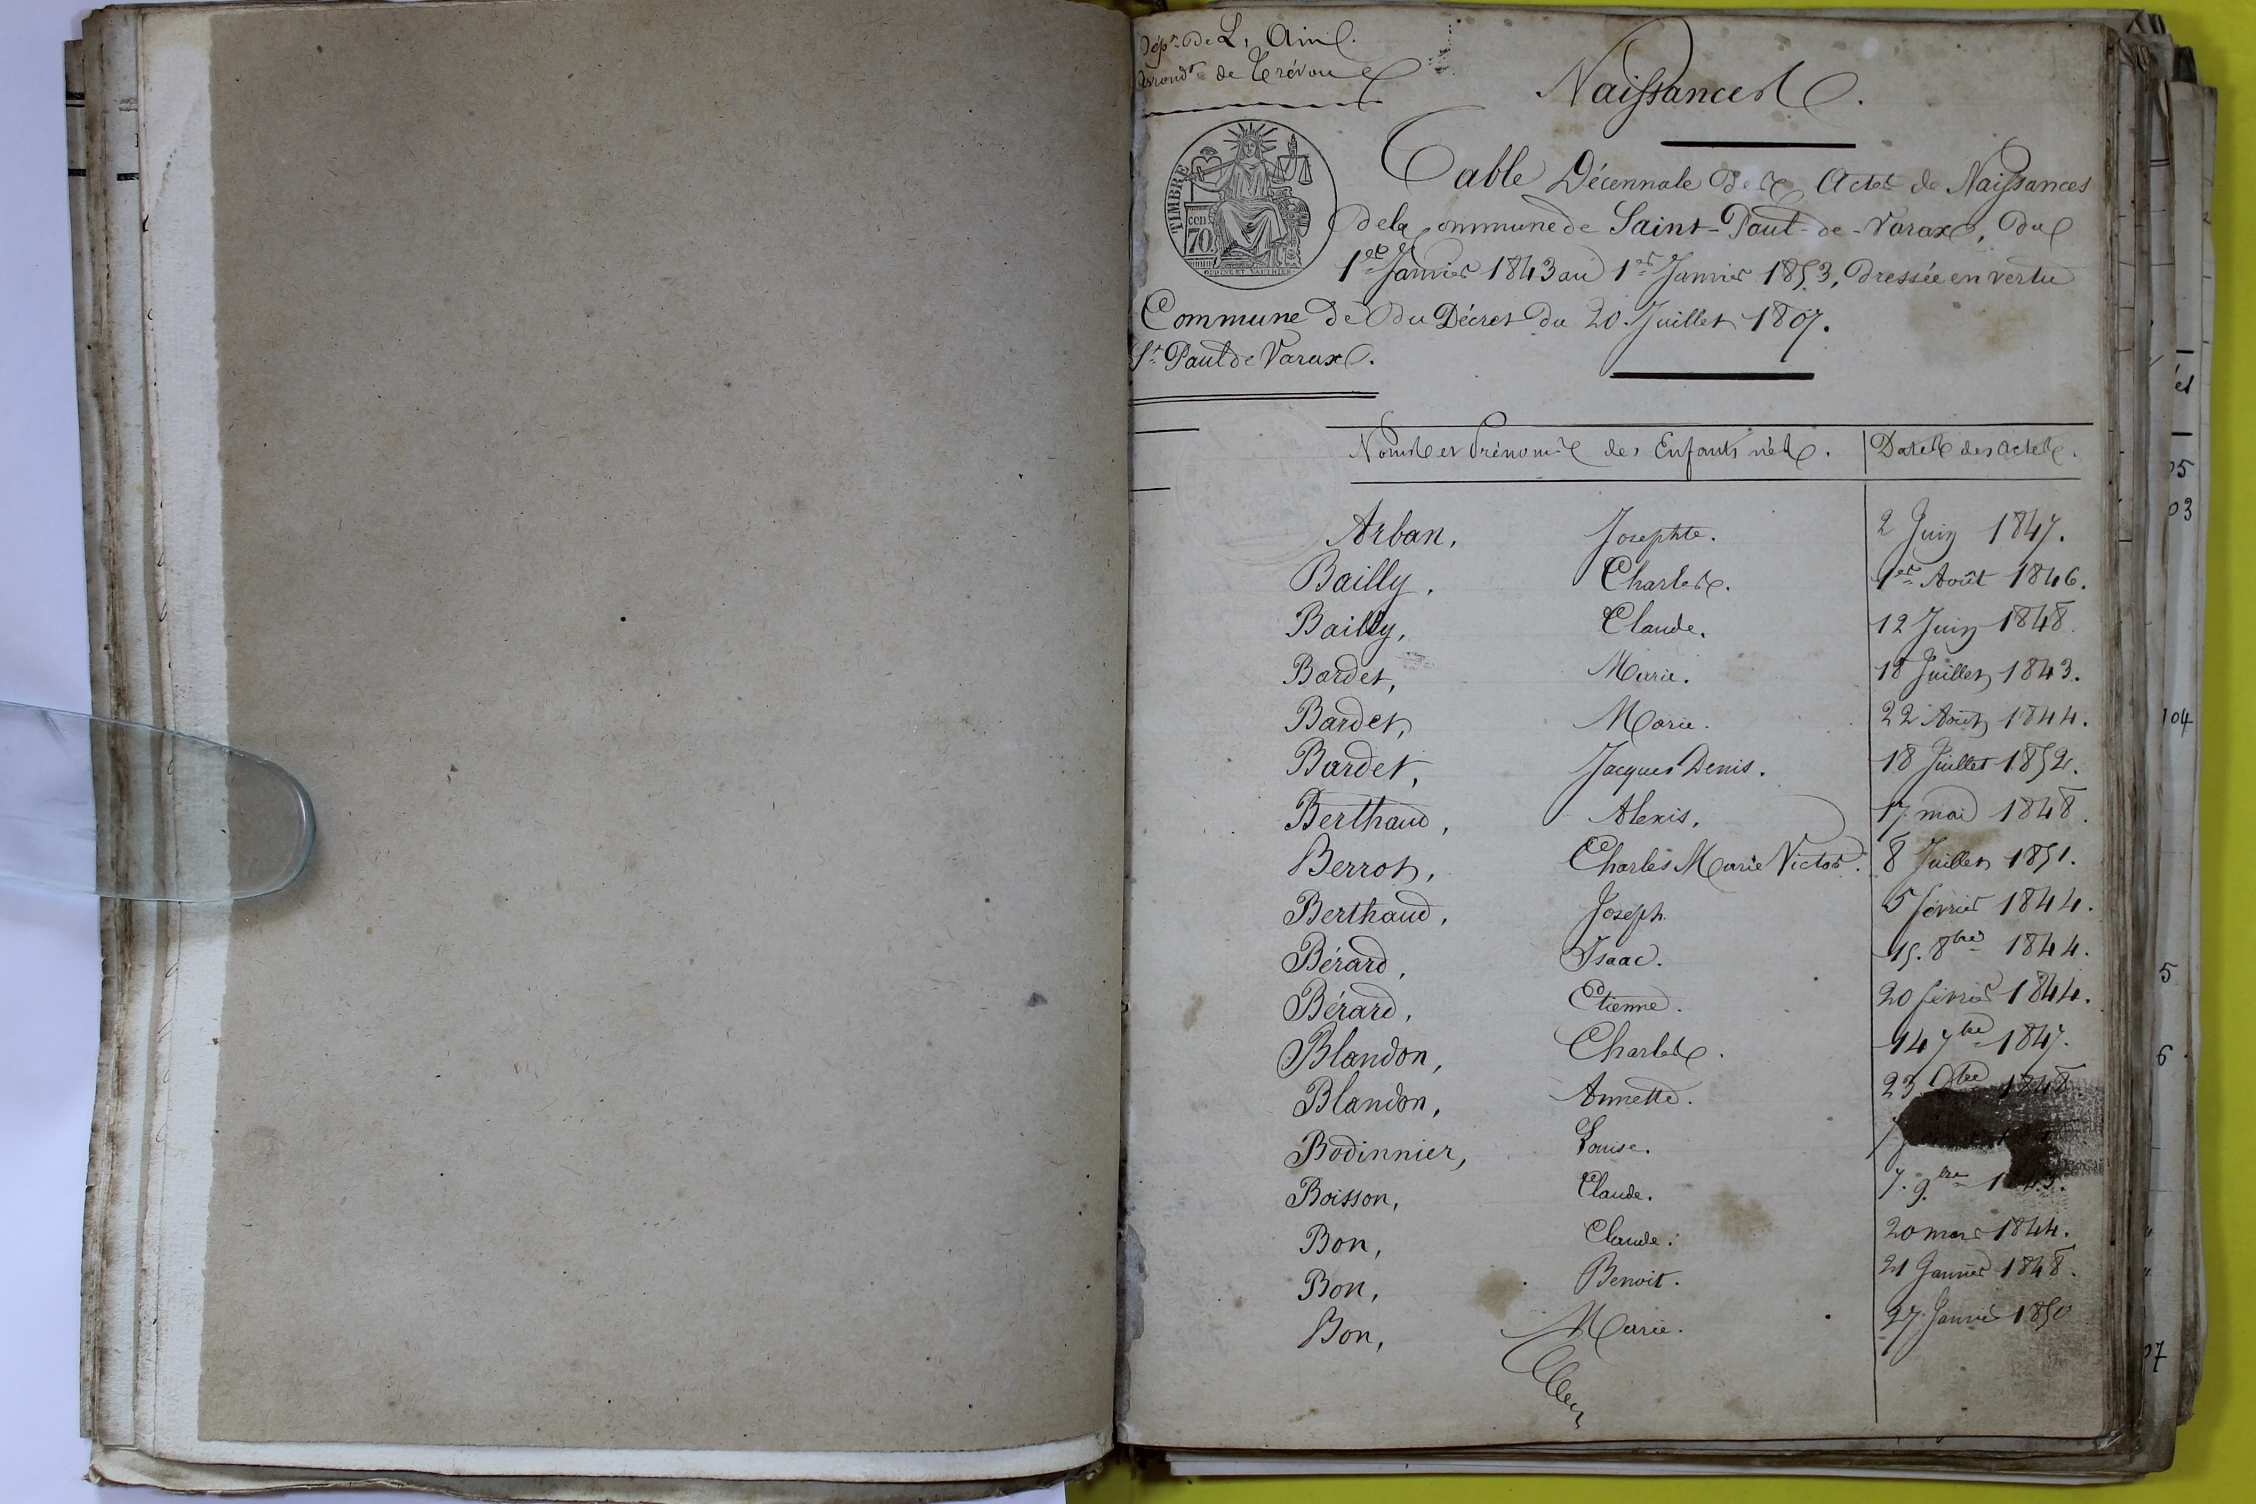 Dép.t de L'Ain.
Arrond.t de Trévoux
Naissances.
TIMBRE
cen
70
Table Décennale des Actes de Naissances
de la Commune de Saint-Paul-de-Varax, du
1er Janvier 1843 au 1er Janvier 1853, dressée en vertu
du Décret du 20 Juillet 1807.
Commune de
St. Paul de Varax.
Noms et Prénoms des Enfants nés. Dates des actes.
Arban, Josephte. 2 Juin 1847.
Bailly, Charles. 1er Août 1846.
Bailly, Claude. 12 Juin 1848.
Bardet, Marie. 18 Juillet 1843.
Bardet, Marie. 22 Août 1844.
Bardet, Jacques Denis. 18 Juillet 1852.
Berthaud, Alexis. 17 mai 1848.
Berrot, Charles Marie Victor. 8 Juillet 1851.
Berthaud, Joseph. 5 février 1844.
Bérard, Isaac. 15. 8bre 1844.
Bérard, Etienne. 20 février 1844.
Blandon, Charles. 14 7bre 1847.
Blandon, Annette. 23 1848.
Bodinnier, Louise.
Boisson, Claude. 7. 9bre
Bon, Claude. 20 mars 1844.
Bon, Benoit. 21 Janvier 1848.
Bon, Marie. 27 Janvier 1850
et
05
03
104
5
6
07